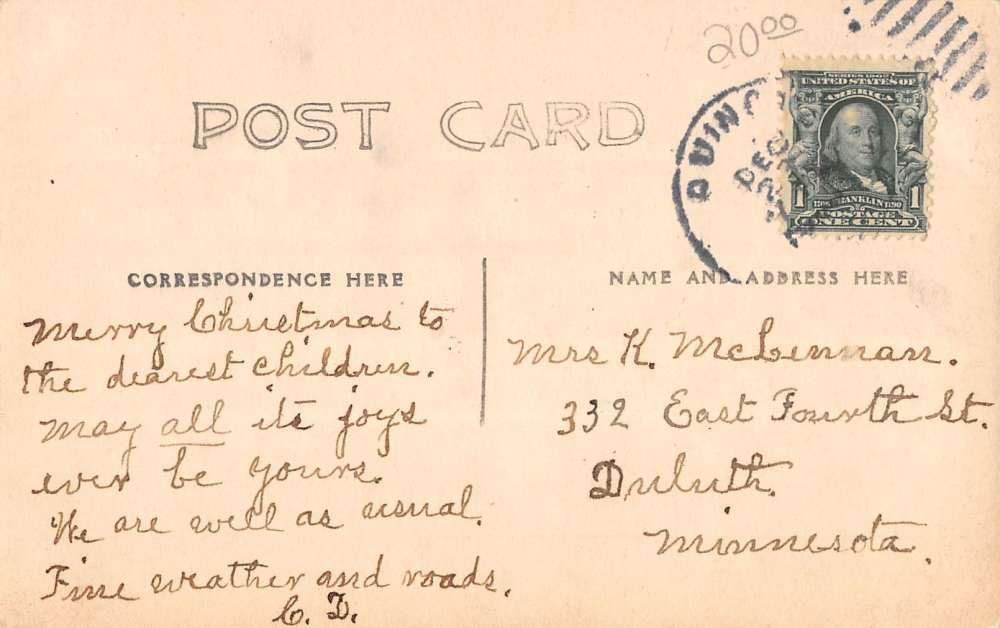 20.00
POST CARD
QUINC
DEC
SERIES 1902
UNITED STATES OF
AMERICA
1 1706 FRANKLIN 1790 1
POSTAGE
ONE CENT
CORRESPONDENCE HERE
Merry Christmas to
the dearest children.
May all its joys
ever be yours.
We are well as usual.
Fine weather and roads.
C. D.
NAME AND ADDRESS HERE
Mrs K. McLennan.
332 East Fourth St.
Duluth,
Minnesota.